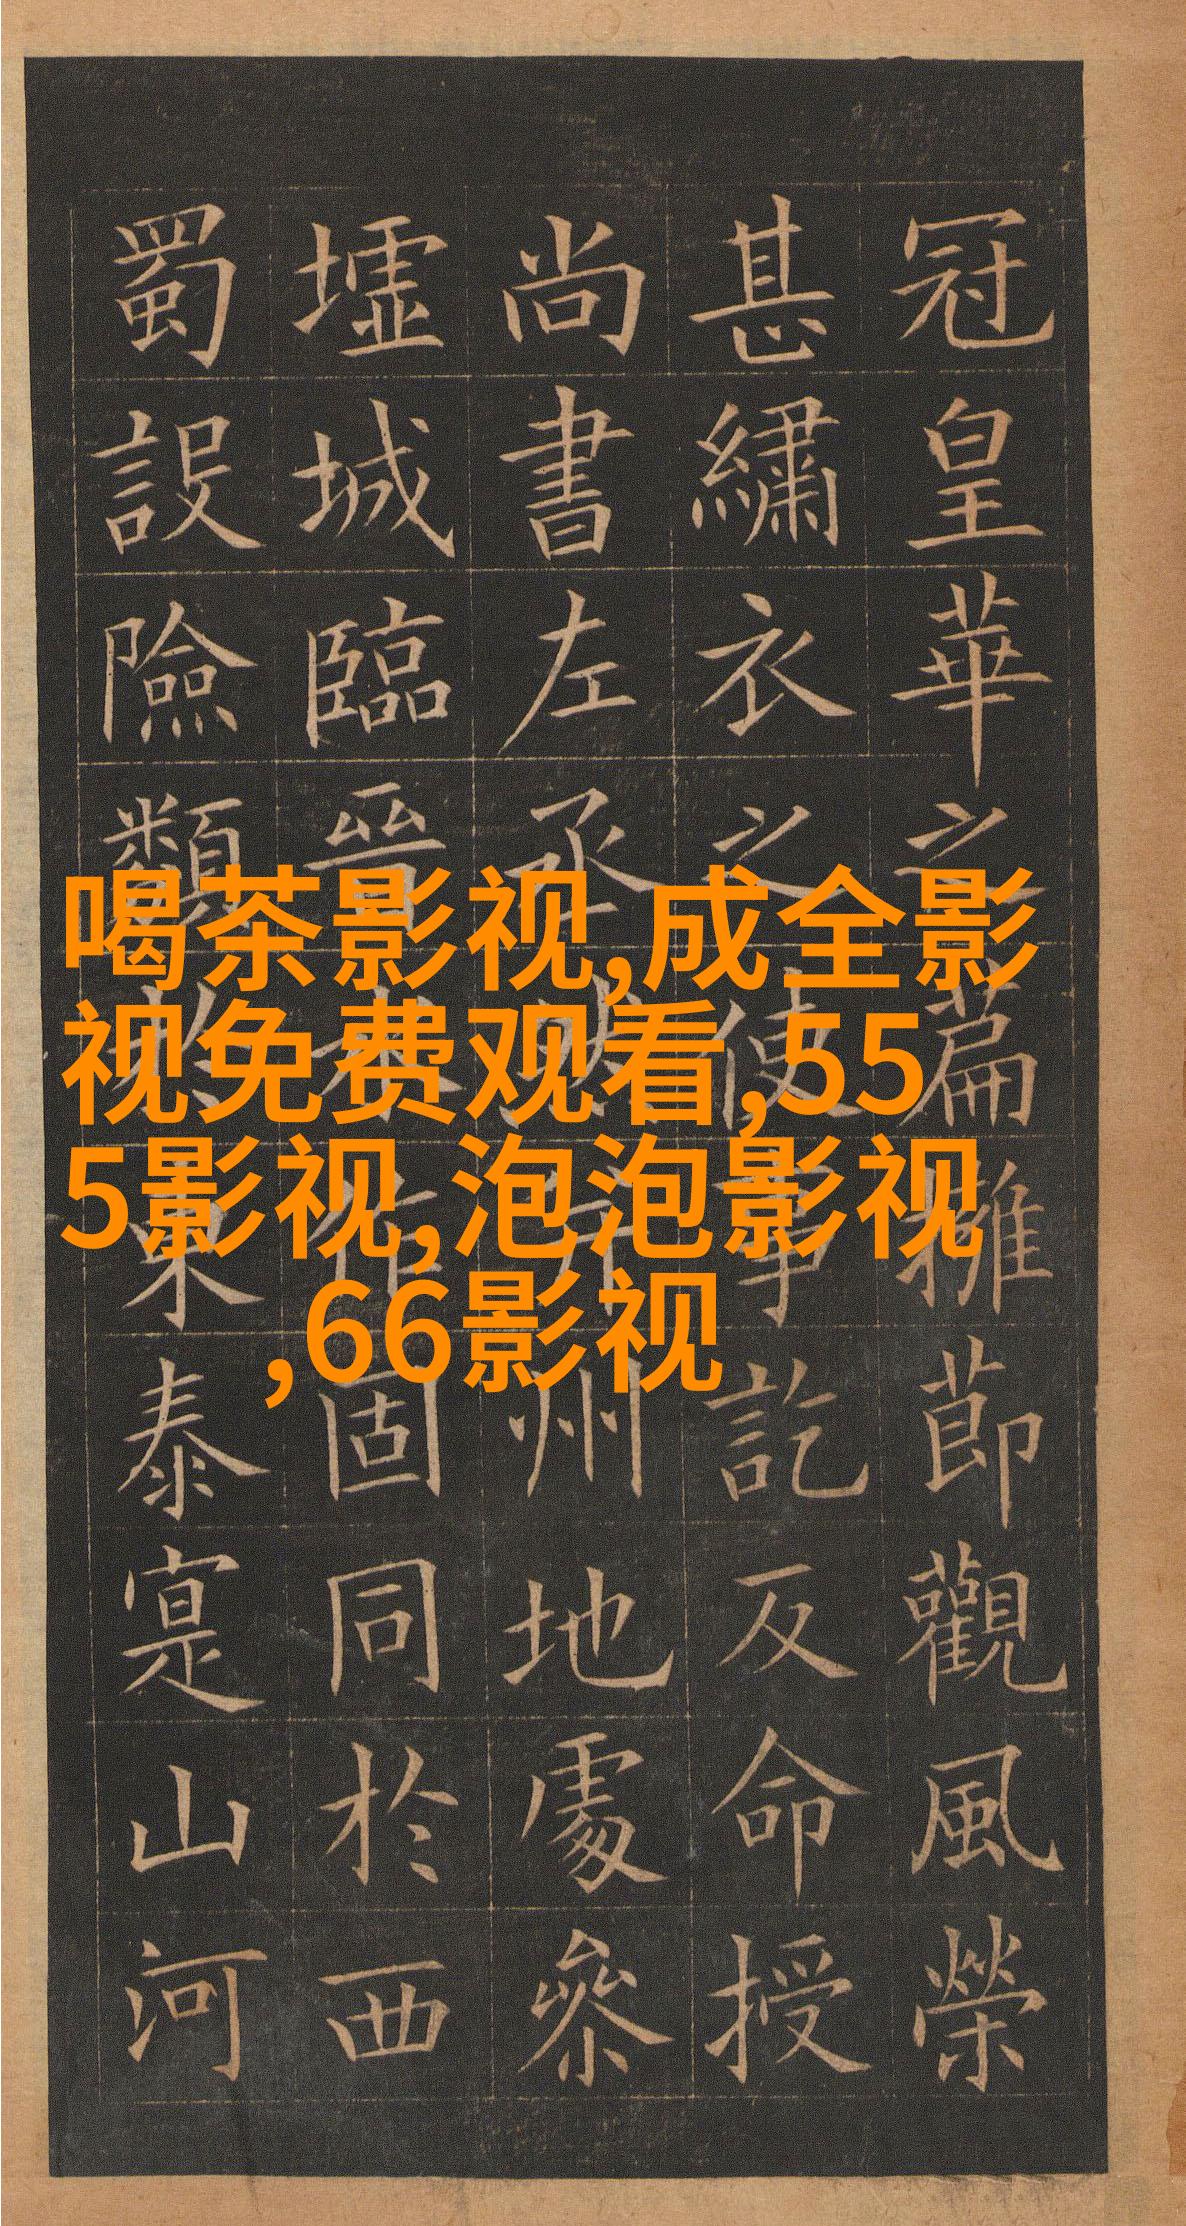 冠皇華之萹擁節觀風榮
甚繡衣之使事訖反命授
尚書左丞州地處參
墟城臨晉水作固同於西
蜀設險類於東泰寔山河
喝茶影视,成全影
视免费观看,55
5影视,泡泡影视
,66影视